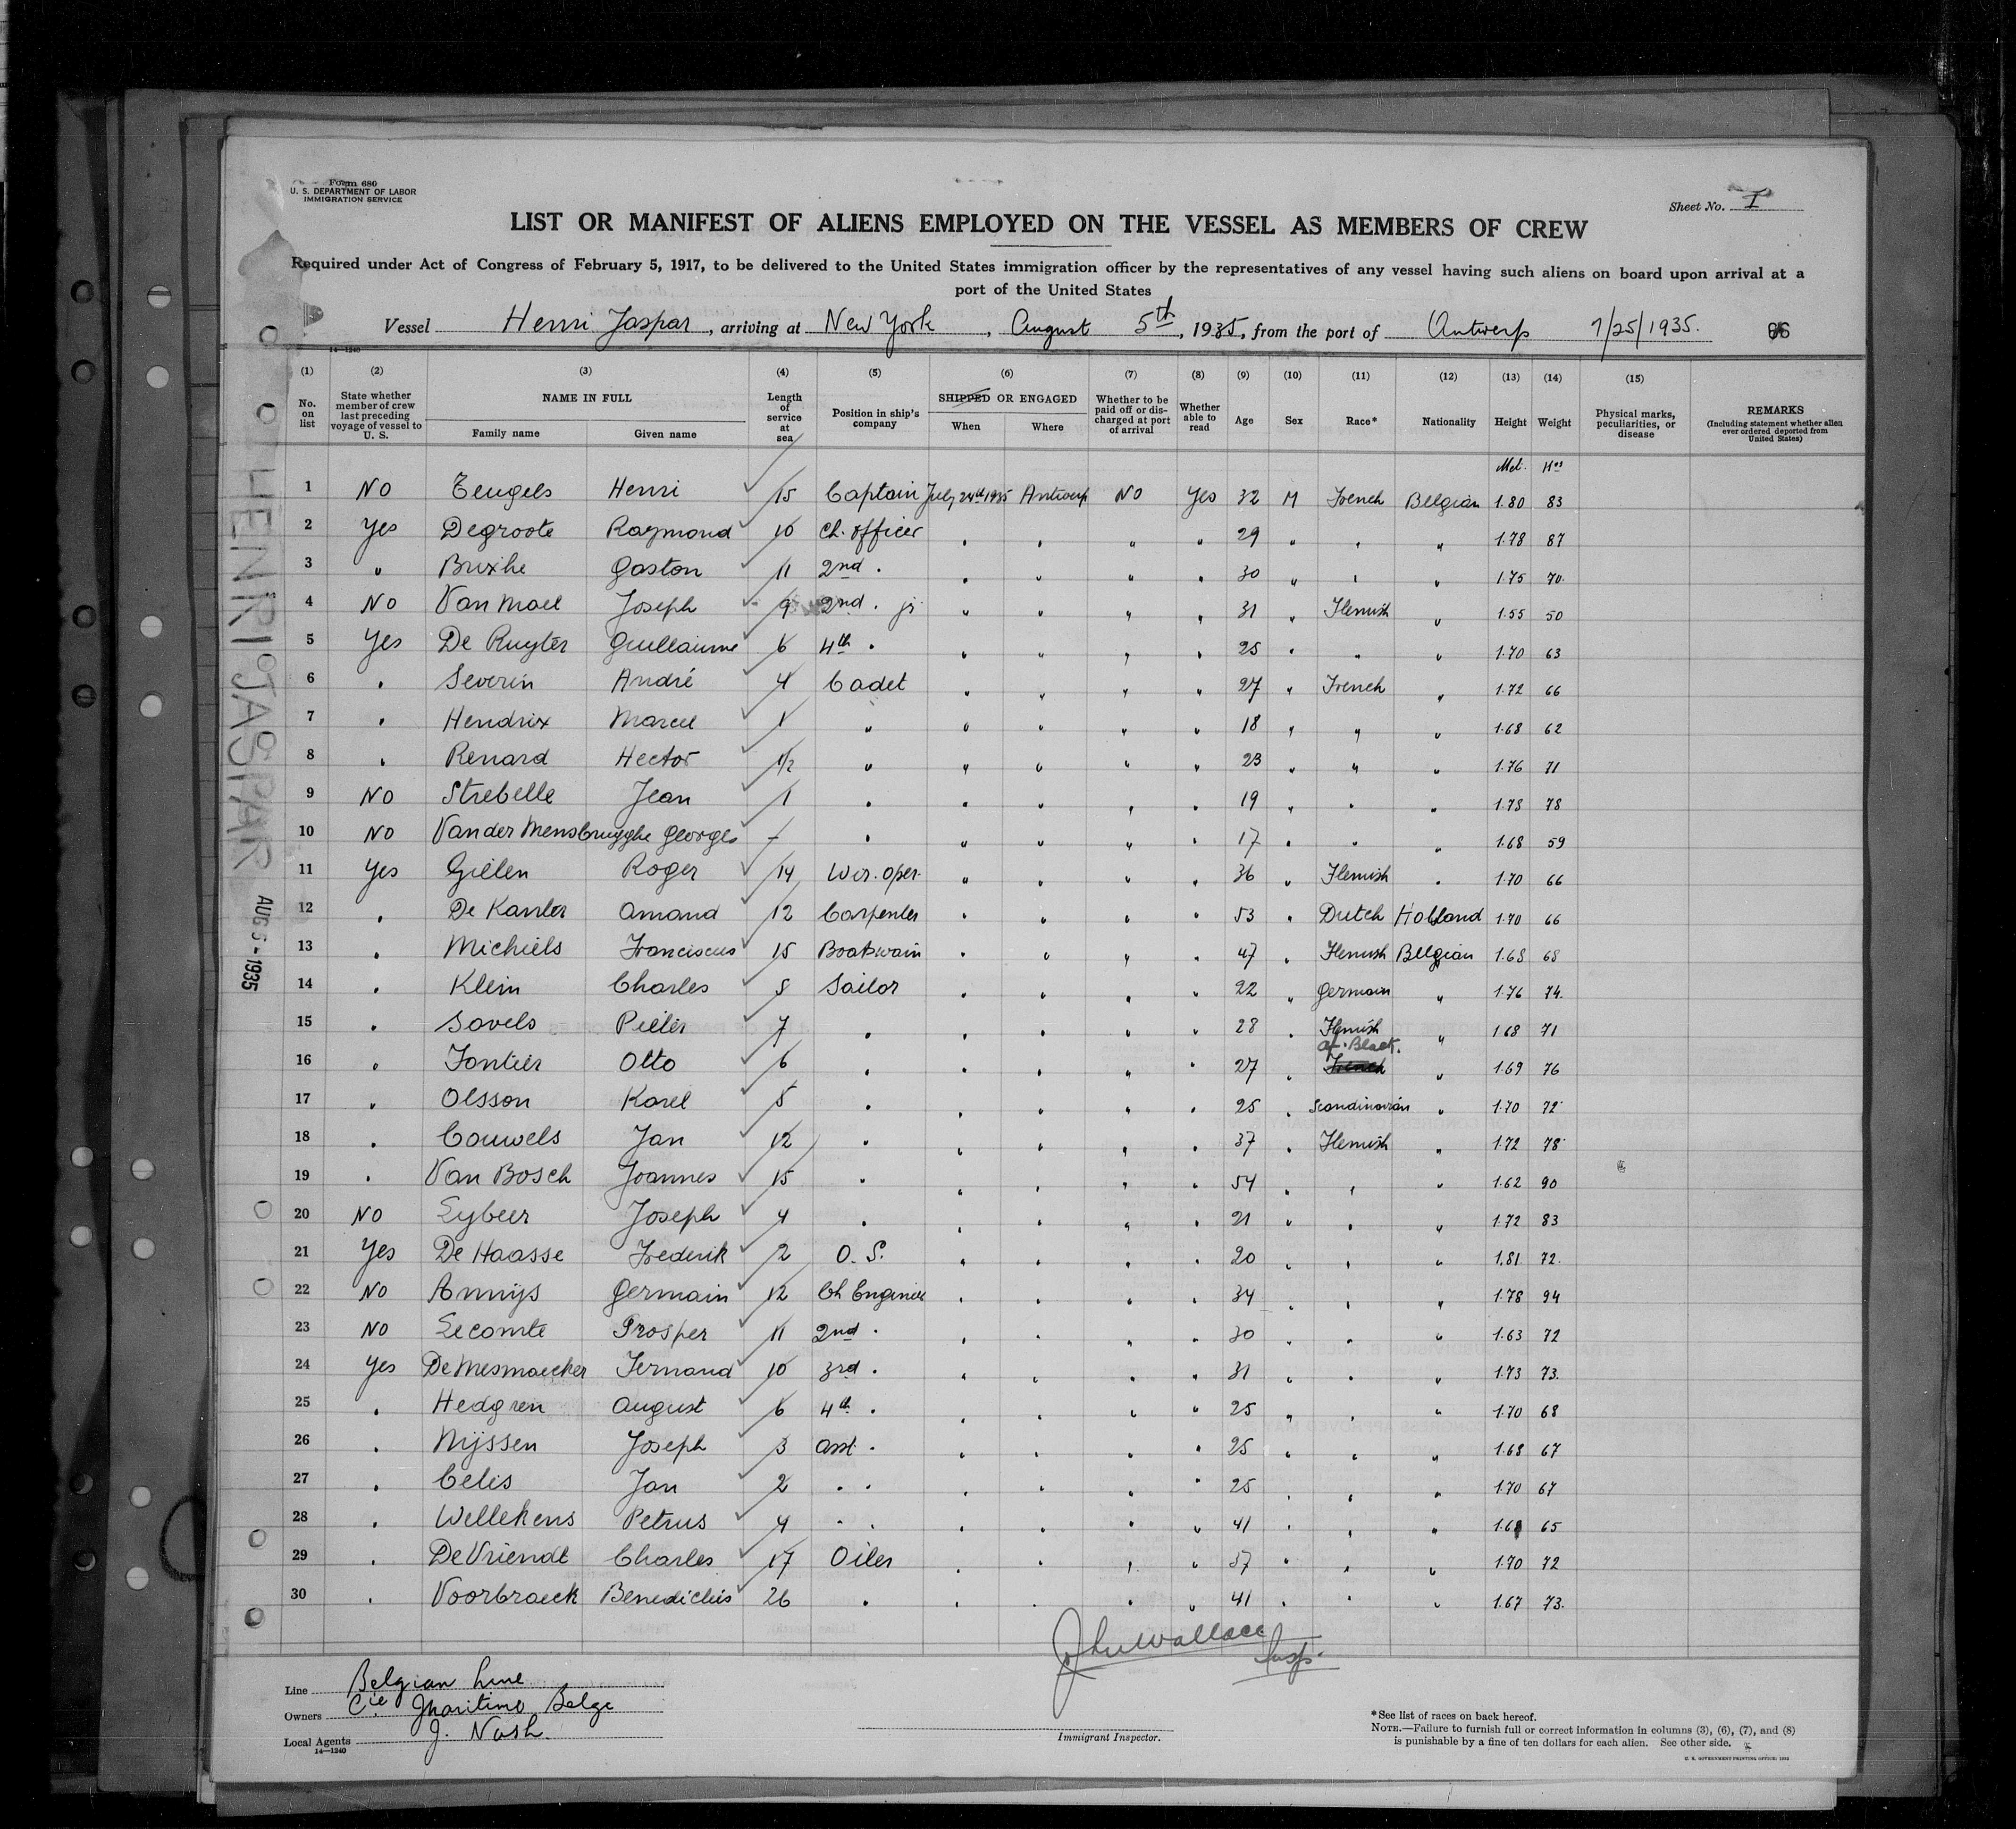 Form 680
U. S. DEPARTMENT OF LABOR
IMMIGRATION SERVICE
Sheet No. I
LIST OR MANIFEST OF ALIENS EMPLOYED ON THE VESSEL AS MEMBERS OF CREW
Required under Act of Congress of February 5, 1917, to be delivered to the United States immigration officer by the representatives of any vessel having such aliens on board upon arrival at a
port of the United States
Vessel Henri Jaspar, arriving at New York, August 5th, 1935, from the port of Antwerp 7/25/1935.
14—1240
(1) (2) (3) (4) (5) (6) (7) (8) (9) (10) (11) (12) (13) (14) (15)
No. on list
State whether member of crew last preceding voyage of vessel to U. S.
NAME IN FULL
Family name Given name
Length of service at sea
Position in ship's company
SHIPPED OR ENGAGED
When Where
Whether to be paid off or discharged at port of arrival
Whether able to read
Age Sex Race* Nationality Height Weight
Physical marks, peculiarities, or disease
REMARKS
(Including statement whether alien ever ordered deported from United States)
Met. Kos
1 NO Teugels Henri 15 Captain July 24th 1935 Antwerp NO Yes 32 M French Belgian 1.80 83
2 Yes Degroote Raymond 10 Ch. officer " " " " 29 " " " 1.78 87
3 " Brixhe Gaston 11 2nd " " " " " 30 " " " 1.75 70
4 NO Van Mael Joseph 9 2nd " jr " " " " 31 " Flemish " 1.55 50
5 Yes De Ruyter Guillaume 6 4th " " " " " 25 " " " 1.70 63
6 " Severin André 4 Cadet " " " " 27 " French " 1.72 66
7 " Hendrix Marcel 1 " " " " " 18 " " " 1.68 62
8 " Renard Hector 1/2 " " " " " 23 " " " 1.76 71
9 NO Strebelle Jean 1 " " " " " 19 " " " 1.78 78
10 NO Vander Mensbrugghe Georges - " " " " " 17 " " " 1.68 59
11 Yes Gillen Roger 14 Wir. oper. " " " " 36 " Flemish " 1.70 66
12 " De Kanter Amand 12 Carpenter " " " " 53 " Dutch Holland 1.70 66
13 " Michiels Franciscus 15 Boatswain " " " " 47 " Flemish Belgian 1.68 68
14 " Klein Charles 5 Sailor " " " " 22 " German " 1.76 74
15 " Savels Pieter 7 " " " " " 28 " Flemish " 1.68 71
Af. Black.
16 " Fontier Otto 6 " " " " " 27 " French " 1.69 76
17 " Olsson Karel 5 " " " " " 25 " Scandinavian " 1.70 72
18 " Couwels Jan 12 " " " " " 37 " Flemish " 1.72 78
19 " Van Bosch Joannes 15 " " " " " 54 " " " 1.62 90
20 NO Lybeer Joseph 4 " " " " " 21 " " " 1.72 83
21 Yes De Haasse Frederik 2 O. S. " " " " 20 " " " 1.81 72
22 NO Annijs Germain 12 Ch Engineer " " " " 34 " " " 1.78 94
23 NO Lecomte Prosper 11 2nd " " " " " 30 " " " 1.63 72
24 Yes De Mesmaecker Fernand 10 3rd " " " " " 31 " " " 1.73 73
25 " Hedgren August 6 4th " " " " " 25 " " " 1.70 68
26 " Nijssen Joseph 3 asst " " " " " 25 " " " 1.68 67
27 " Celis Jan 2 " " " " " " 25 " " " 1.70 67
28 " Wellekens Petrus 4 " " " " " " 41 " " " 1.68 65
29 " De Vriendt Charles 17 Oiler " " " " 37 " " " 1.70 72
30 " Voorbraeck Benedictus 26 " " " " " 41 " " " 1.67 73
John Wallace
Insp.
Line Belgian Line
Owners Cie Maritime Belge
Local Agents J. Nash.
14—1240
Immigrant Inspector.
*See list of races on back hereof.
NOTE.—Failure to furnish full or correct information in columns (3), (6), (7), and (8)
is punishable by a fine of ten dollars for each alien. See other side.
U. S. GOVERNMENT PRINTING OFFICE
HENRI JASPAR
AUG 5 - 1935